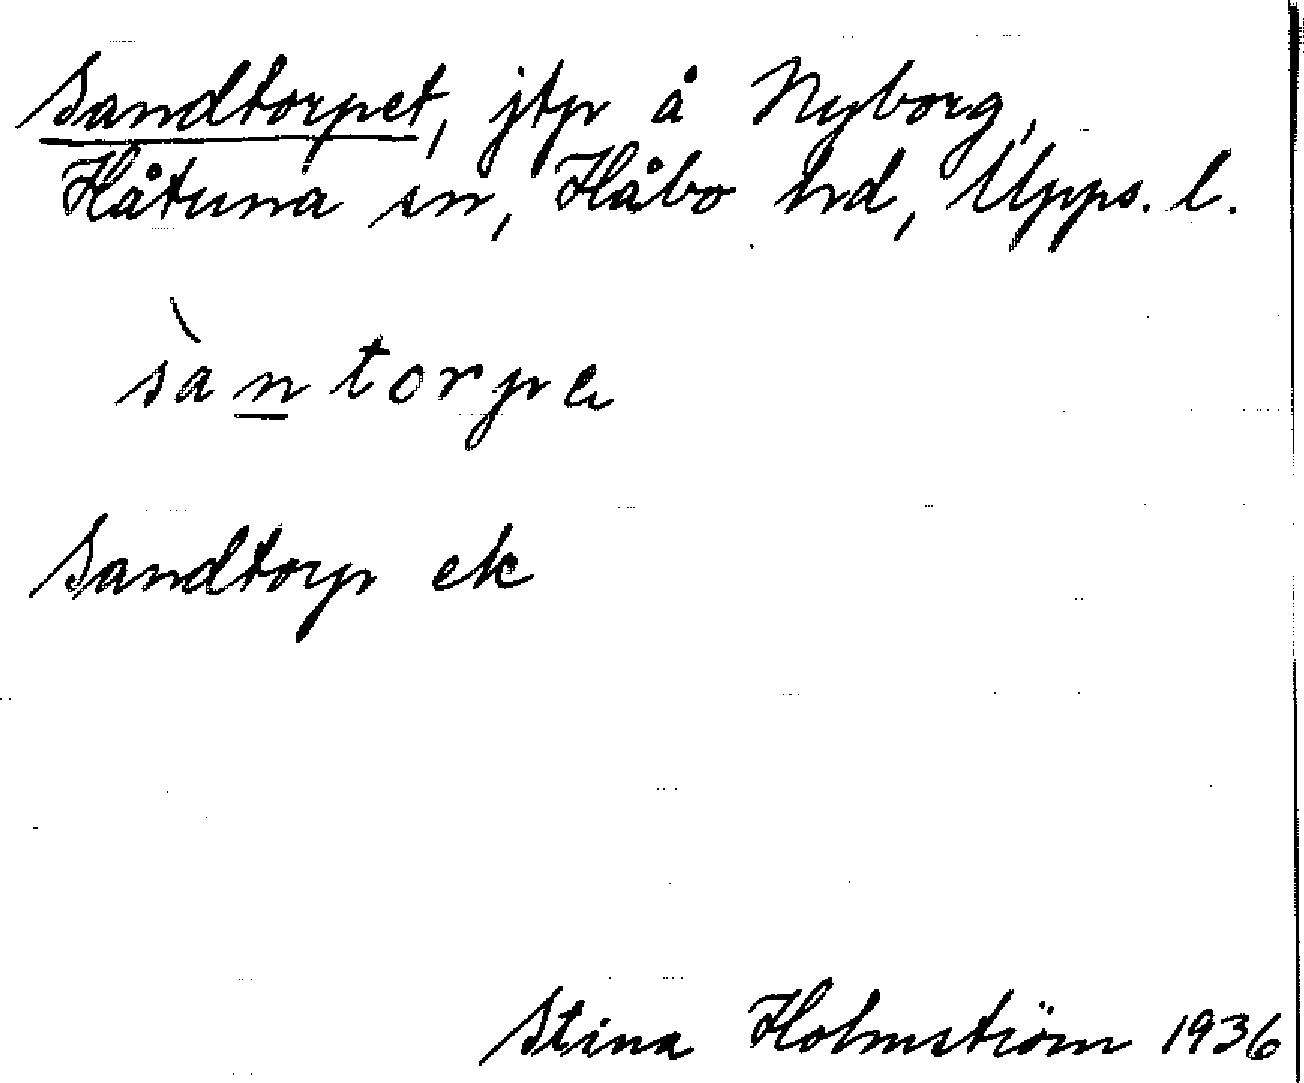 Sandtorpet, jtp å Nyborg,
Håtuna sn, Håbo hd, Upps. l.
sàntorpe
Sandtorp ek
Stina Holmström 1936